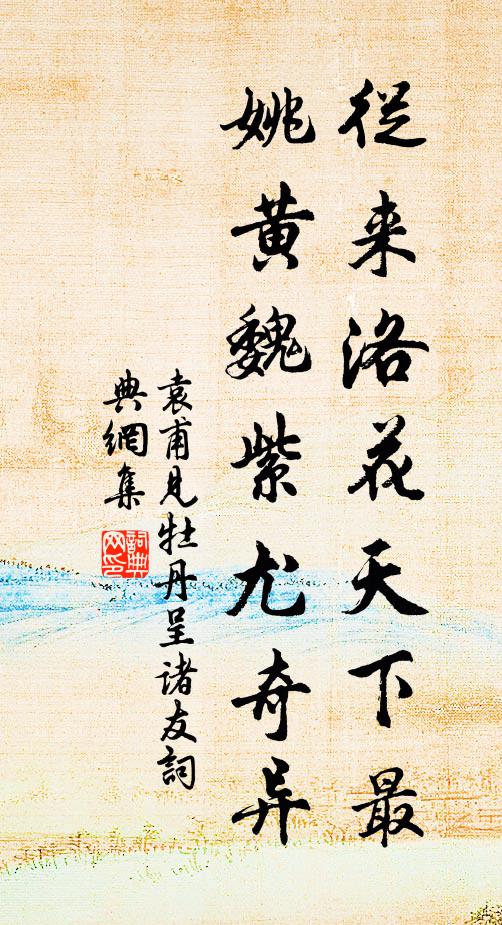 從来洛花天下最
姚黄魏紫尤奇异
袁甫見牡丹呈诸友詞
典網集
詞典
网印